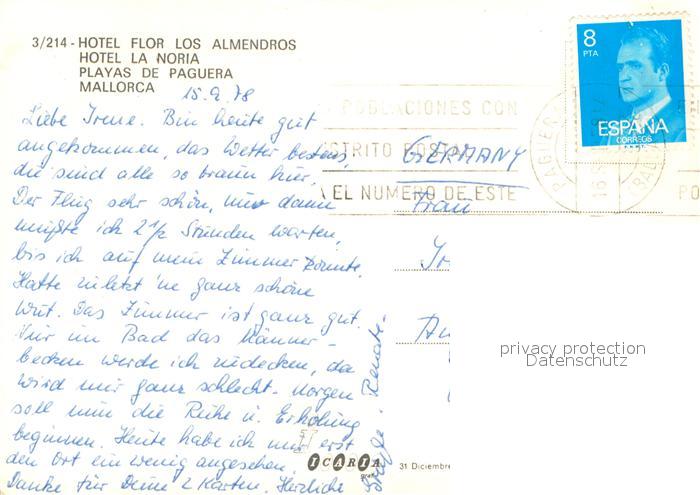 3/214 - HOTEL FLOR LOS ALMENDROS
HOTEL LA NORIA
PLAYAS DE PAGUERA
MALLORCA
15.9.78
Liebe Irene. Bin heute gut
angekommen, das Wetter bestens,
die sind alle so braun hier.
Der Flug sehr schön, nur dann
mußte ich 2 1/2 Stunden warten,
bis ich auf mein Zimmer konnte.
Hatte zuletzt 'ne ganz schöne
Wut. Das Zimmer ist ganz gut.
Nur im Bad das Männer-
becken werde ich zudecken, da
wird mir ganz schlecht. Morgen
soll nun die Ruhe u. Erholung
beginnen. Heute habe ich mir erst
den Ort ein wenig angesehen.
Danke für Deine 2 Karten. Herzliche
Grüße. Renate.
8
PTA
ESPAÑA
CORREOS
POBLACIONES CON
DISTRITO POSTAL
EL NUMERO DE ESTE
PO
PAGUERA
GERMANY
Frau
ICARIA
31 Diciembre
privacy protection
Datenschutz